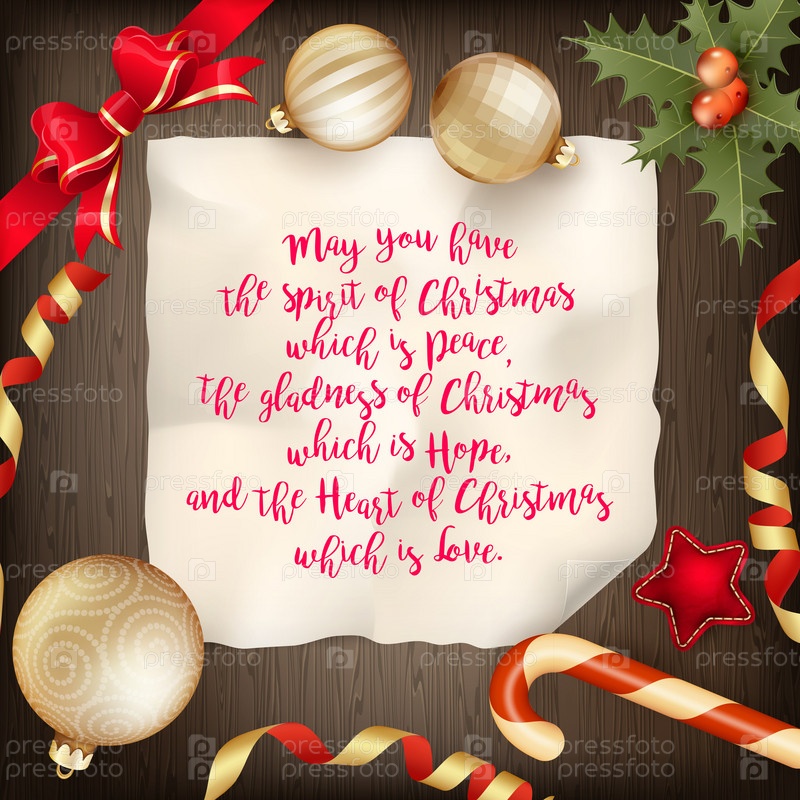 May you have
the spirit of Christmas
which is Peace,
the gladness of Christmas
which is Hope,
and the Heart of Christmas
which is Love.
pressfoto